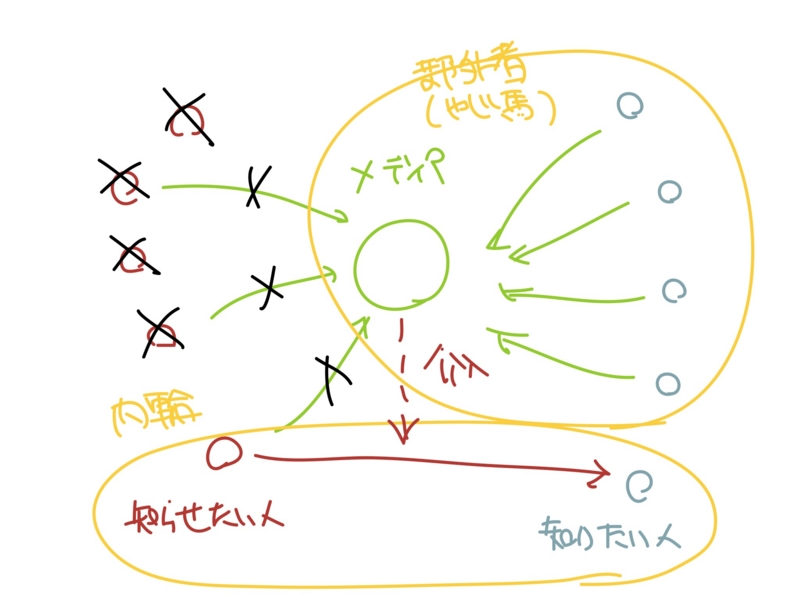 部外者
(やじ馬)
メディア
介入
内輪
知らせたい人
知りたい人